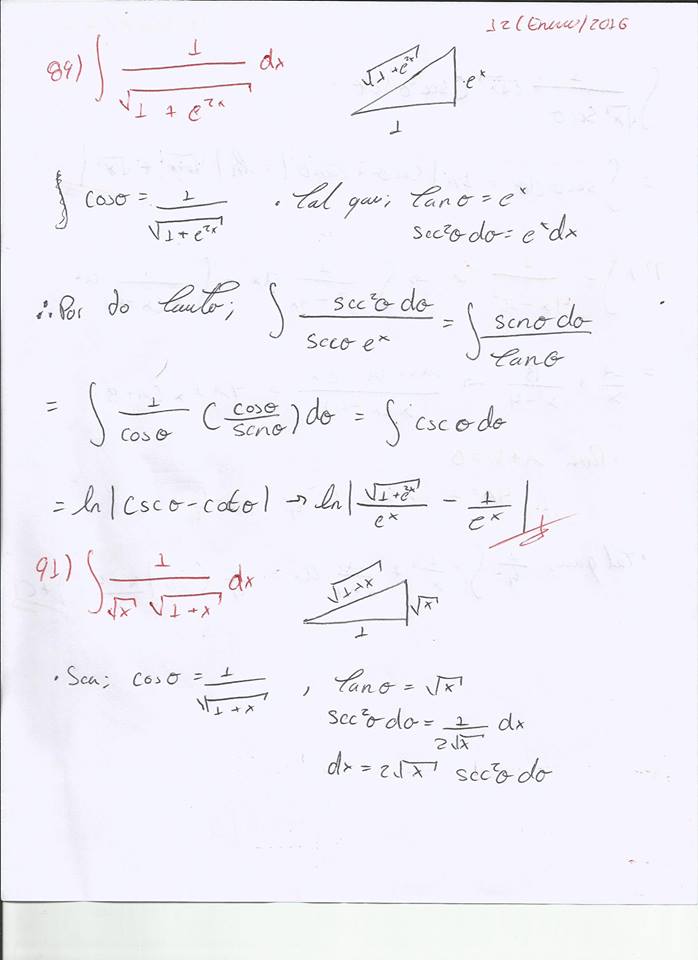 12/Enero/2016
89) ∫ 1/√(1 + e^{2x}) dx
√(1+e^{2x})
e^x
1
∫ cosθ = 1/√(1+e^{2x}) . tal que; tanθ = e^x
sec²θ dθ = e^x dx
∴ Por do tanto; ∫ sec²θ dθ/(secθ e^x) = ∫ secθ dθ/tanθ
= ∫ 1/cosθ (cosθ/senθ) dθ = ∫ cscθ dθ
= ln|cscθ - cotθ| → ln|√(1+e^{2x})/e^x - 1/e^x|
91) ∫ 1/(√x √(1+x)) dx
√(1+x)
√x
1
. Sea; cosθ = 1/√(1+x) , tanθ = √x
sec²θ dθ = 1/(2√x) dx
dx = 2√x sec²θ dθ